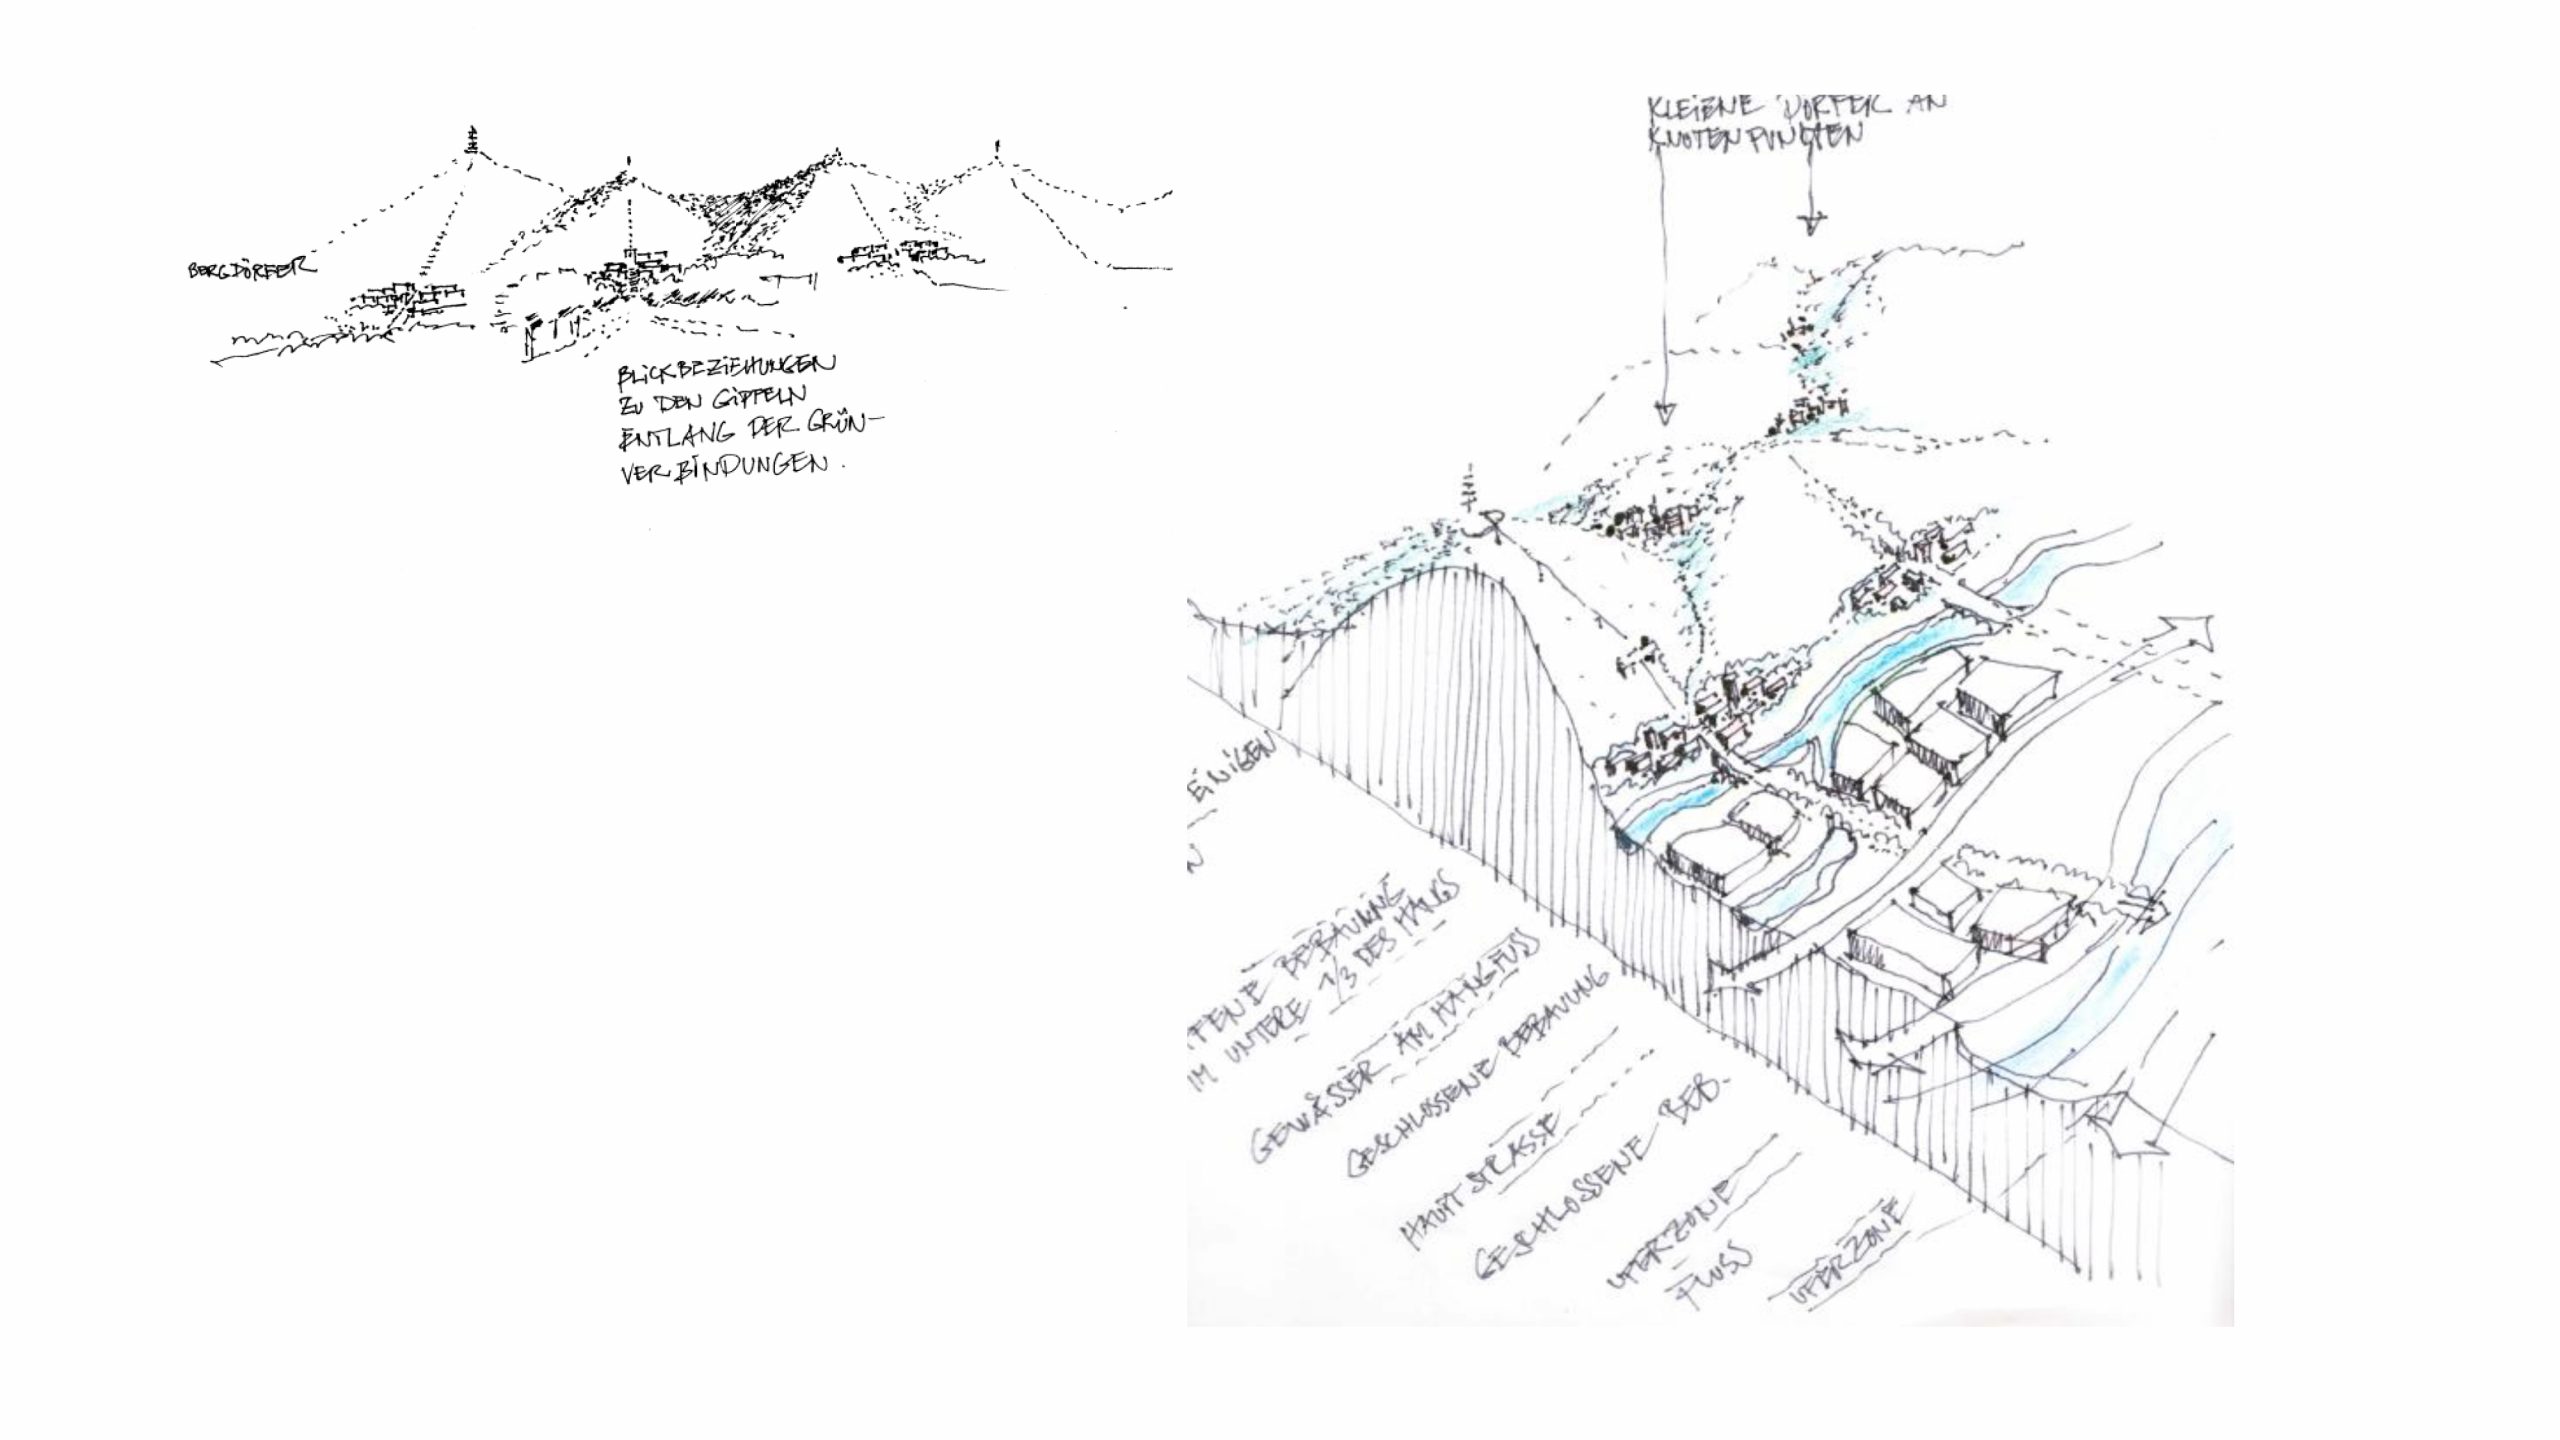 BERGDÖRFER
BLICKBEZIEHUNGEN
ZU DEN GIPFELN
ENTLANG DER GRÜN-
VERBINDUNGEN.
KLEIENE DÖRFER AN
KNOTENPUNKTEN
EINIGEN
N
FFENE BEBAUUNG
IM UNTERE 1/3 DES HANGS
GEWÄSSER AM HANGFUSS
GESCHLOSSENE BEBAUUNG
HAUPTSTRASSE
GESCHLOSSENE BEB.
UFERZONE
FLUSS
UFERZONE